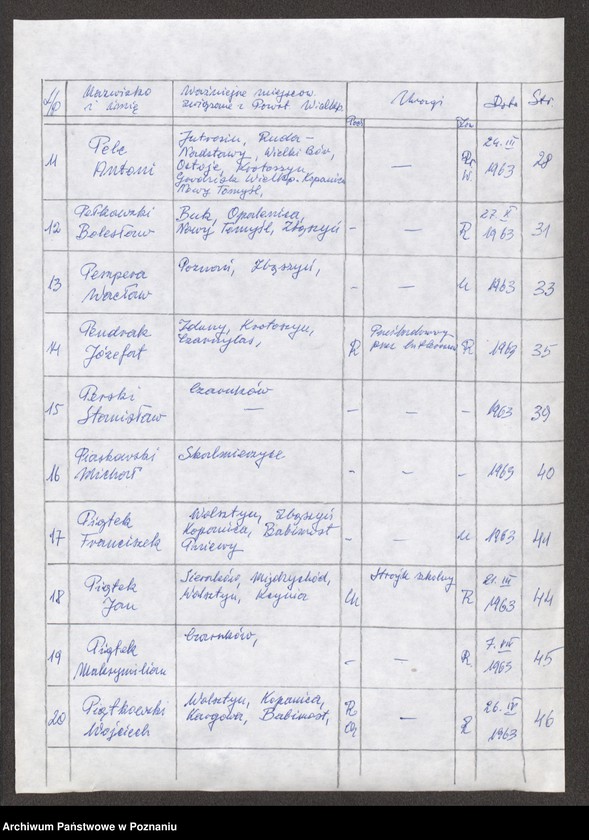 L/p Nazwisko i imię Ważniejsze miejscow. związane z Powst. Wielkp. Uwagi Data Str.
11 Pelc Antoni Jutrosin, Ruda-Nadstawy, Wielki Bór, Osteje, Krotoszyn, Grodzisk Wielkp. Kopanica Nowy Tomyśl, — 24. III 1963 28
12 Petkowski Bolesław Buk, Opalenica, Nowy Tomyśl, Zbąszyń - — R 27. X 1963 31
13 Pempera Wacław Poznań, Zbąszyń, - — U 1963 33
14 Pendrak Józefat Zduny, Krotoszyn, Czarnylas, R R 1963 35
15 Perski Stanisław Czarnków — - — - 1963 39
16 Piaskowski Michał Skalmierzyce - — - 1963 40
17 Piątek Franciszek Wolsztyn, Zbąszyń Kopanica, Babimost Pniewy - — U 1963 41
18 Piątek Jan Sieraków, Międzychód, Wolsztyn, Kcynia U Strajk szkolny R 21. III 1963 44
19 Piątek Maksymilian Czarnków, - — R 7. VII 1963 45
20 Piątkowski Wojciech Wolsztyn, Kopanica, Kargowa, Babimost, R — R 26. IV 1963 46
Archiwum Państwowe w Poznaniu